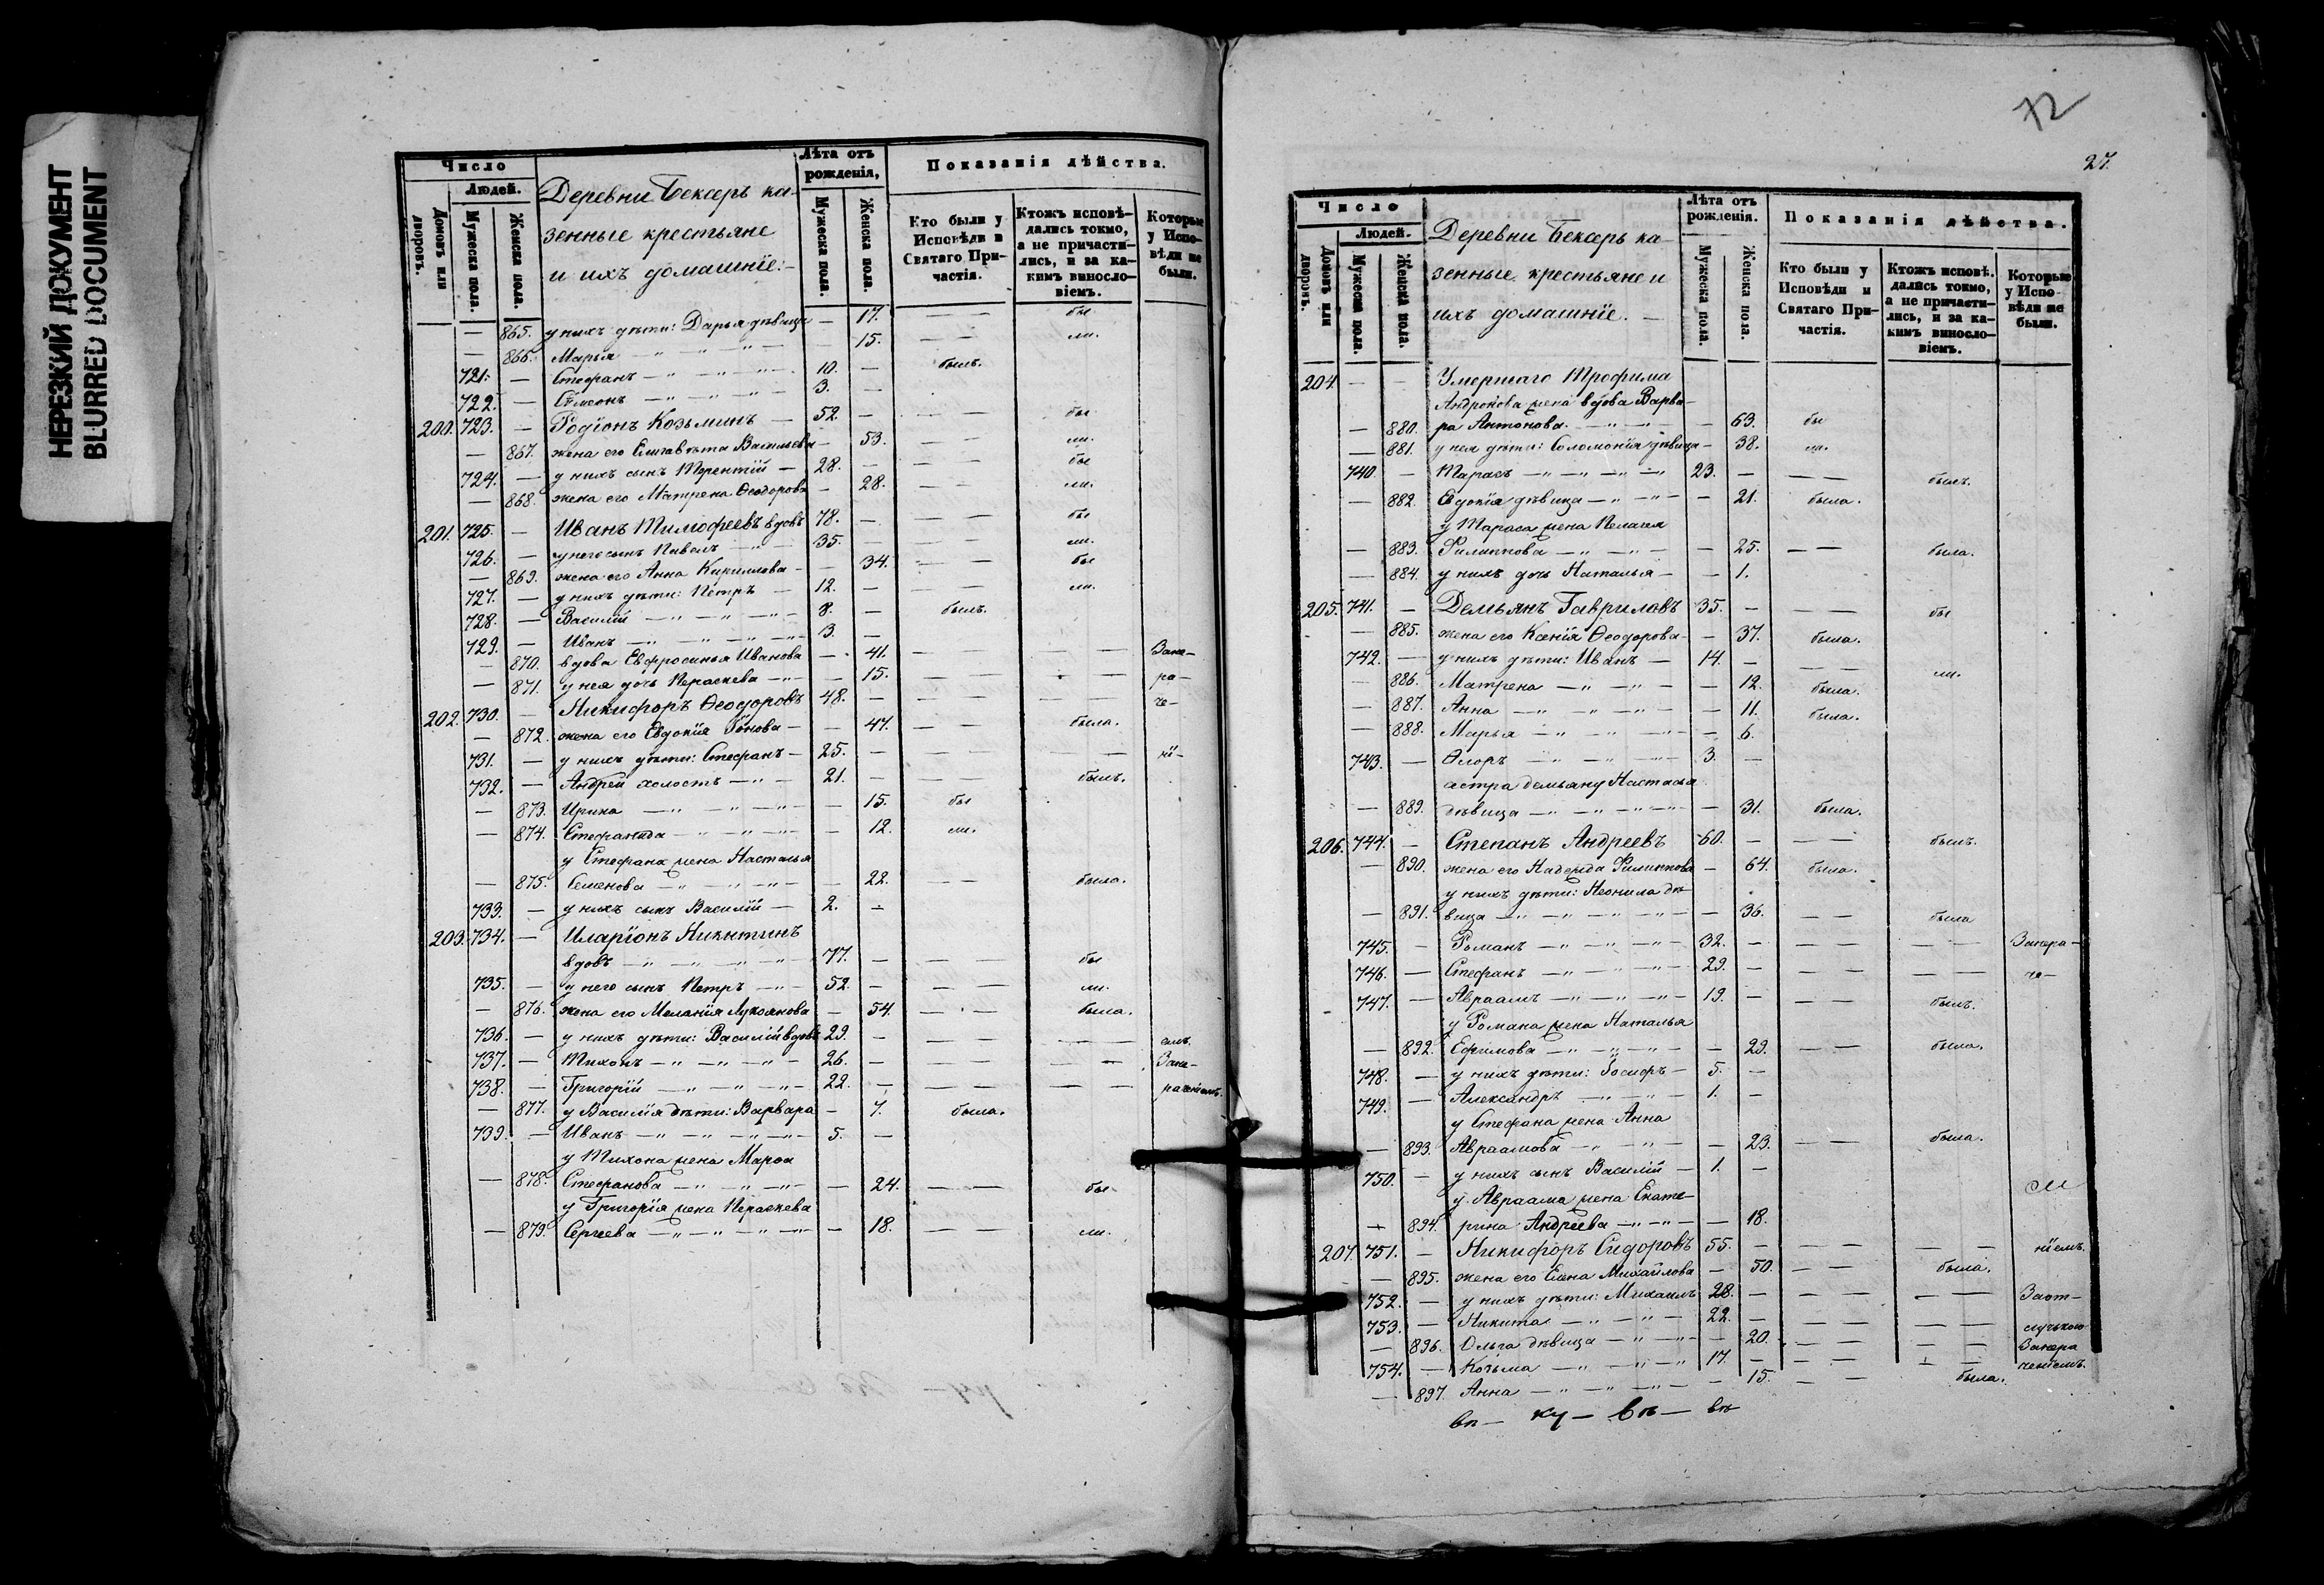 НЕРЕЗКИЙ ДОКУМЕНТ
BLURRED DOCUMENT
Число
Людей.
Домовъ или дворовъ.
Мужеска пола.
Женска пола.
Деревни Бекарь ка-
зенные крестьяне
и ихъ домашніе:
Лѣта отъ рожденія,
Мужеска пола.
Женска пола.
Показанія дѣйства.
Кто были у Исповѣди и Святаго При-частія.
Ктожъ исповѣ-дались токмо, а не причасти-лись, и за ка-кимъ виносло-віемъ.
Которые у Испо-вѣди не были.
— 865. у нихъ дѣти: Дарья дѣвица — 17. — — бы
— 866. Марья —"— — 15. — — ли.
721. — Стефанъ —"— 10. — былъ.
722. — Сѵмеонъ —"— 3. —
200. 723. — Родіонъ Козьминъ — 52. — — — бы
— 867. жена его Елисавѣта Васильева — 53. — — ли.
724. — у нихъ сынъ Терентій — 28. — — — бы
— 868. жена его Матрена Ѳеодорова — 28. — — ли.
201. 725. — Иванъ Тимофеевъ вдовъ 78. — — — бы
726. — у него сынъ Павелъ —"— 35. — — — ли.
— 869. жена его Анна Кириллова — 34. — — бы
727. — у нихъ дѣти: Петръ — 12. — — — ли.
728. — Василій —"— 8. — былъ.
729. — Иванъ —"— 3. —
— 870. вдова Евфросинья Иванова — 41. — — — — Зане-
— 871. у нея дочь Параскева —"— — 15. — — — — ра-
202. 730. — Никифоръ Ѳеодоровъ 48. — — — — — че-
— 872. жена его Евдокія Іонова — — 47. — — была.
731. — у нихъ дѣти: Стефанъ — 25. — — — — — ні-
732. — Андрей холостъ —"— 21. — — — былъ.
— 873. Ирина —"— — 15. бы
— 874. Стефанида —"— — 12. ли.
у Стефана жена Настасья
— 875. Семенова —"— — 22. — — была.
733. — у нихъ сынъ Василій — 2. —
203. 734. — Иларіонъ Никитинъ
вдовъ —"— 77. — — — бы
735. — у него сынъ Петръ —"— 52. — — — ли.
— 876. жена его Меланія Лукоянова — 54. — — была.
736. — у нихъ дѣти: Василій вдовъ 29. — — — — — емъ.
737. — Тихонъ —"— 26. — — — Зане-
738. — Григорій —"— 22. — — — — — раченіемъ.
— 877. у Василія дѣти: Варвара — 7. была.
739. — Иванъ —"— 5. —
у Тихона жена Марѳа
— 878. Стефанова —"— — 24. — — бы-
у Григорія жена Параскева
— 879. Сергеева —"— — 18. — — ли.
72
27.
Число
Людей.
Домовъ или дворовъ.
Мужеска пола.
Женска пола.
Деревни Бекарь ка-
зенные крестьяне и
ихъ домашніе. —
Лѣта отъ рожденія.
Мужеска пола.
Женска пола.
Показанія дѣйства.
Кто были у Исповѣди и Святаго При-частія.
Ктожъ исповѣ-дались токмо, а не причасти-лись, и за ка-кимъ виносло-віемъ.
Которые у Испо-вѣди не были.
204. — — Умершаго Трофима
Андронова жена вдова Варва-
— 880. ра Антонова. —"— — 63. бы
— 881. у нея дѣти: Соломонія дѣвица — 38. ли.
740. — Тарасъ —"— 23. — — — былъ.
— 882. Евдокія дѣвица —"— — 21. была.
у Тараса жена Пелагея
— 883. Филиппова —"— — 25. — — была.
— 884. у нихъ дочь Наталья — — 1.
205. 741. — Демьянъ Гавриловъ 35. — — — бы
— 885. жена его Ксенія Ѳеодорова — 37. была.
742. — у нихъ дѣти: Иванъ — 14. — — — ли.
— 886. Матрена —"— — 12. была.
— 887. Анна —"— — 11. была.
— 888. Марья —"— — 6.
743. — Ѳлоръ —"— 3. —
сестра Демьяну Настасья
— 889. дѣвица —"— — 31. была.
206. 744. — Степанъ Андреевъ 60. — — — былъ.
— 890. жена его Надежда Филиппова — 64. была.
у нихъ дѣти: Неонила дѣ-
— 891. вица —"— — 36. — — была
745. — Романъ —"— 32. — — — — — Занера-
746. — Стефанъ —"— 29. — — — — че-
747. — Авраамъ —"— 19. — — — былъ.
у Романа жена Наталья
— 892. Ефимова —"— — 29. — — была.
748. — у нихъ дѣти: Іосифъ — 5. —
749. — Александръ —"— 1. —
у Стефана жена Анна
— 893. Авраамова —"— — 23. — — была.
750. — у нихъ сынъ Василій — 1. —
у Авраама жена Екате-
— 894. рина Андреева —"— — 18.
207. 751. — Никифоръ Сидоровъ 55. — — — — — ніемъ.
— 895. жена его Елена Михайлова — 50. — — была.
752. — у нихъ дѣти: Михаилъ 28. — — — — — Заот-
753. — Никита —"— 22. — — — — — лучкою
— 896. Ольга дѣвица —"— — 20. — — — — Занера
754. — Козьма —"— 17. — — — — — ченіемъ.
— 897. Анна —"— — 15. — — была.